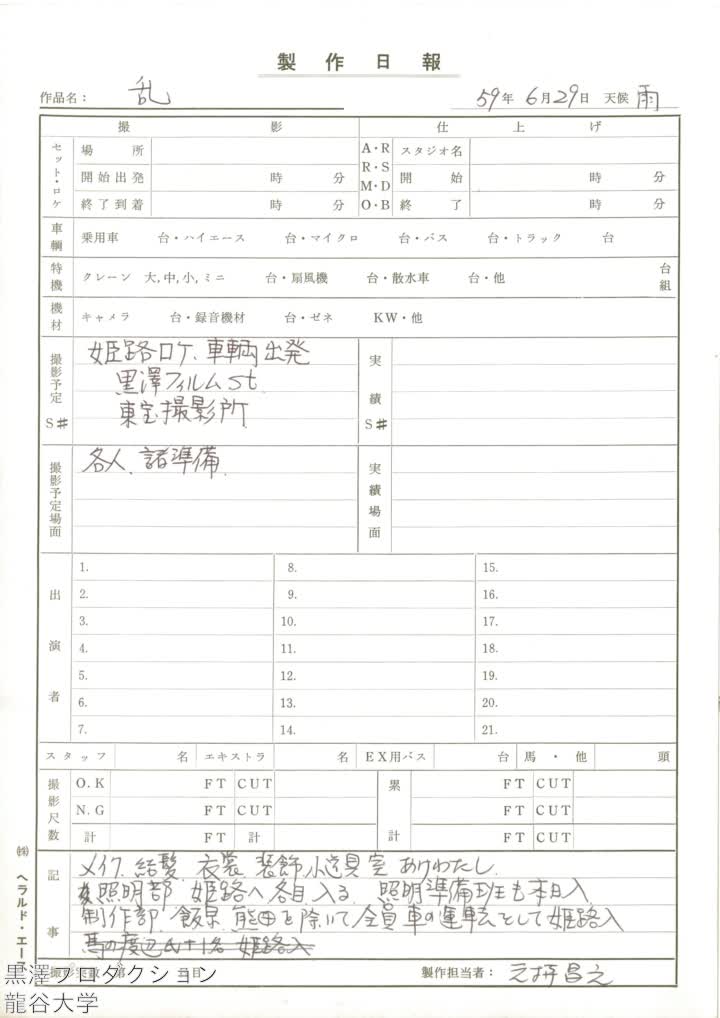 製作日報
作品名： 乱 59年 6月29日 天候 雨
撮影 仕上げ
セット・ロケ 場所 A・R スタジオ名
開始出発 時 分 R・S M・D 開始 時 分
終了到着 時 分 O・B 終了 時 分
車輌 乗用車 台・ハイエース 台・マイクロ 台・バス 台・トラック 台
特機 クレーン 大,中,小,ミニ 台・扇風機 台・散水車 台・他 台組
機材 キャメラ 台・録音機材 台・ゼネ KW・他
撮影予定 S# 姫路ロケ、車輌出発 実績 S#
黒澤フィルムSt.
東宝撮影所
撮影予定場面 各人、諸準備 実績場面
出演者
1. 8. 15.
2. 9. 16.
3. 10. 17.
4. 11. 18.
5. 12. 19.
6. 13. 20.
7. 14. 21.
スタッフ 名 エキストラ 名 EX用バス 台 馬・他 頭
撮影尺数 O.K FT CUT 累計 FT CUT
N.G FT CUT FT CUT
計 FT 計 FT CUT
記事
メイク、結髪、衣裳、装飾小道具室 あけわたし
照明部 姫路へ各自入る、照明準備班も本日入
制作部、飯泉、熊田を除いて全員車の運転として姫路入
馬の渡辺氏+1名 姫路入
撮影実数 第 日目 製作担当者：
㈱ ヘラルド・エース
黒澤プロダクション
龍谷大学